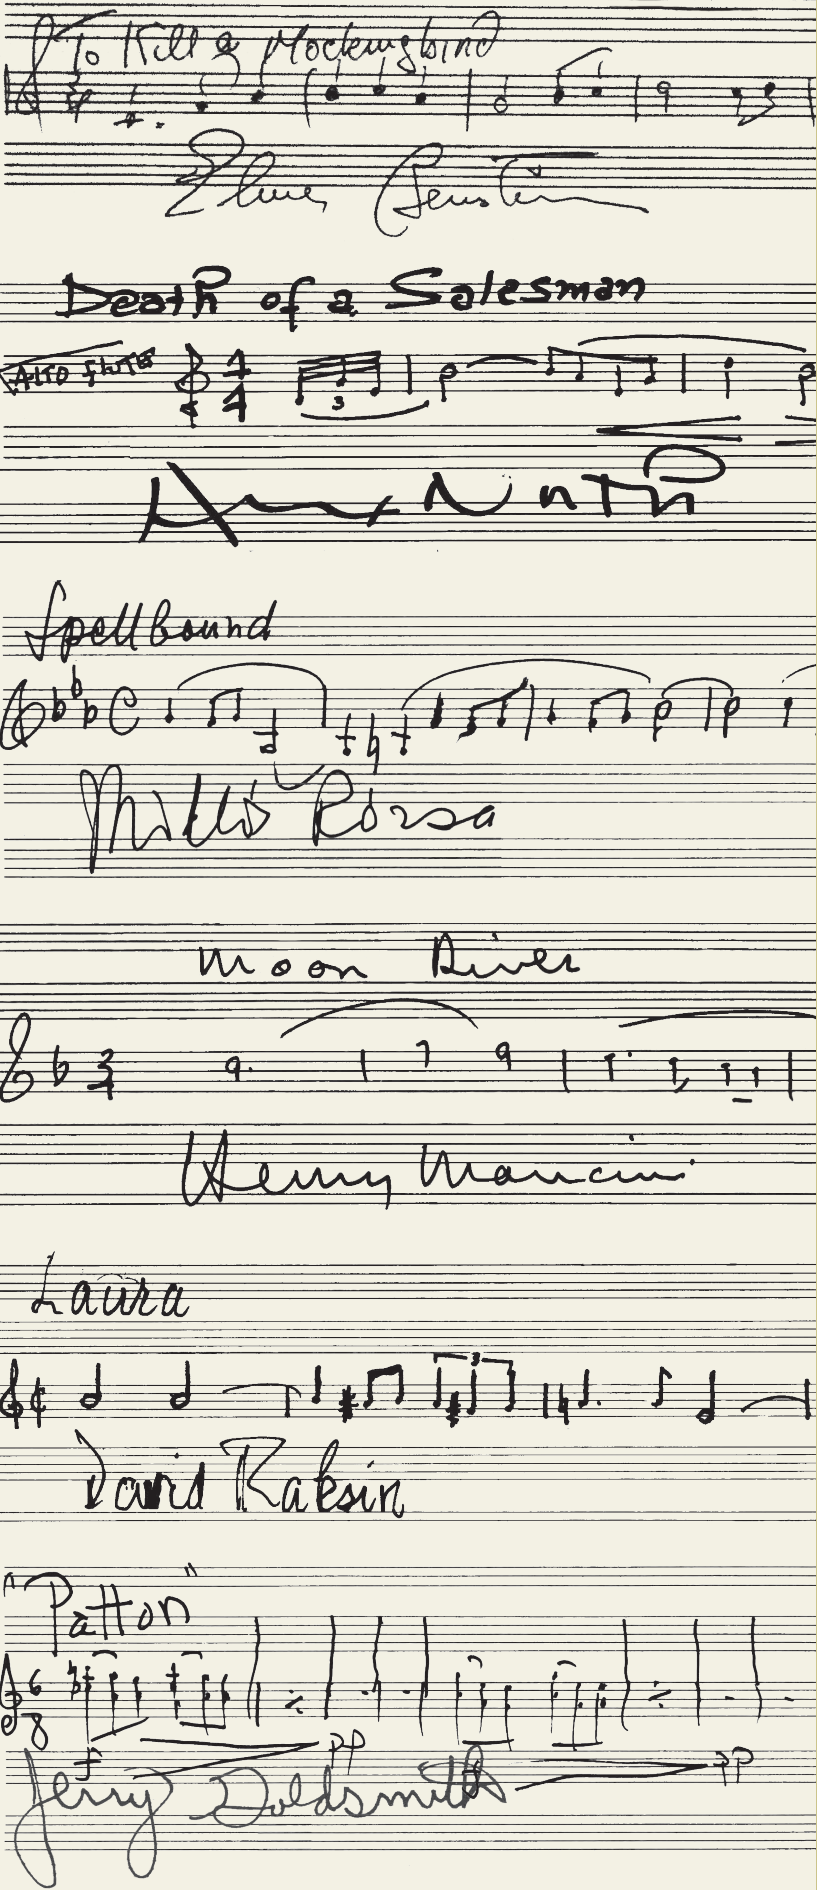 To Kill a Mockingbird
Elmer Bernstein
Death of a Salesman
ALTO FLUTE 4 4
3
Alex North
Spellbound
C
Miklós Rózsa
Moon River
3 4
Henry Mancini
Laura
3
David Raksin
"Patton"
6 8
f pp f pp
Jerry Goldsmith